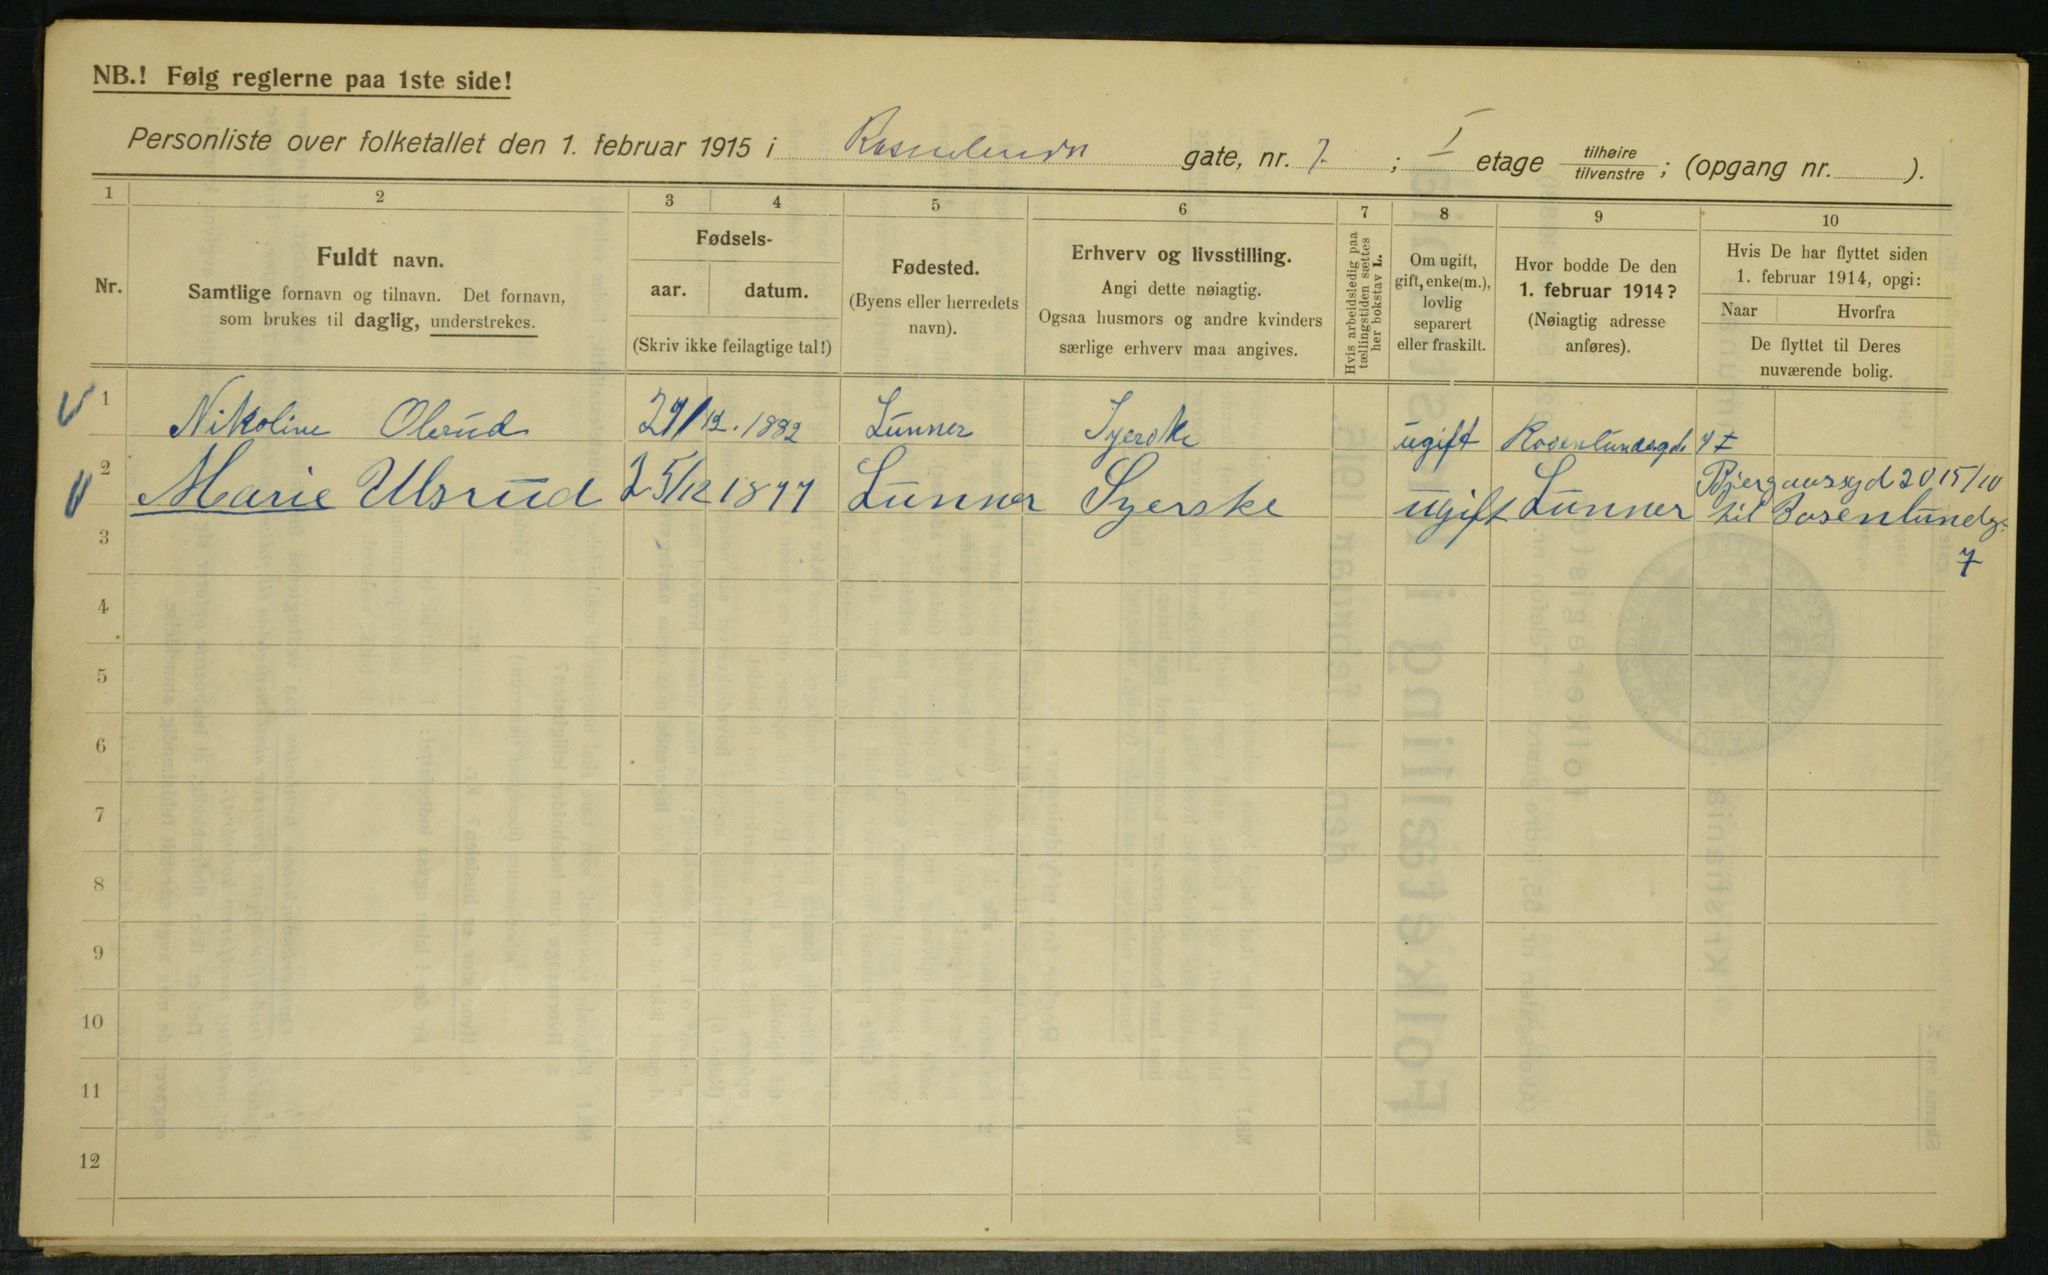 NB.! Følg reglerne paa 1ste side!
Personliste over folketallet den 1. februar 1915 i Rosenlunds gate, nr. 7. ; I etage tilhøire/tilvenstre ; (opgang nr. ).
1 2 3 4 5 6 7 8 9 10
Nr.
Fuldt navn.
Samtlige fornavn og tilnavn. Det fornavn,
som brukes til daglig, understrekes.
Fødsels-
aar. datum.
(Skriv ikke feilagtige tal!)
Fødested.
(Byens eller herredets
navn).
Erhverv og livsstilling.
Angi dette nøiagtig.
Ogsaa husmors og andre kvinders
særlige erhverv maa angives.
Hvis arbeidsledig paa
tællingstiden sættes
her bokstav L.
Om ugift,
gift, enke(m.),
lovlig
separert
eller fraskilt.
Hvor bodde De den
1. februar 1914?
(Nøiagtig adresse
anføres).
Hvis De har flyttet siden
1. februar 1914, opgi:
Naar Hvorfra
De flyttet til Deres
nuværende bolig.
1 Nikoline Olsrud 29/12. 1882 Lunner Syerske ugift Rosenlundsgd. 7 I
2 Marie Ulsrud 25/12 1877 Lunner Syerske ugift Lunner 20 15/10
til Rosenlundg.
7
3
4
5
6
7
8
9
10
11
12